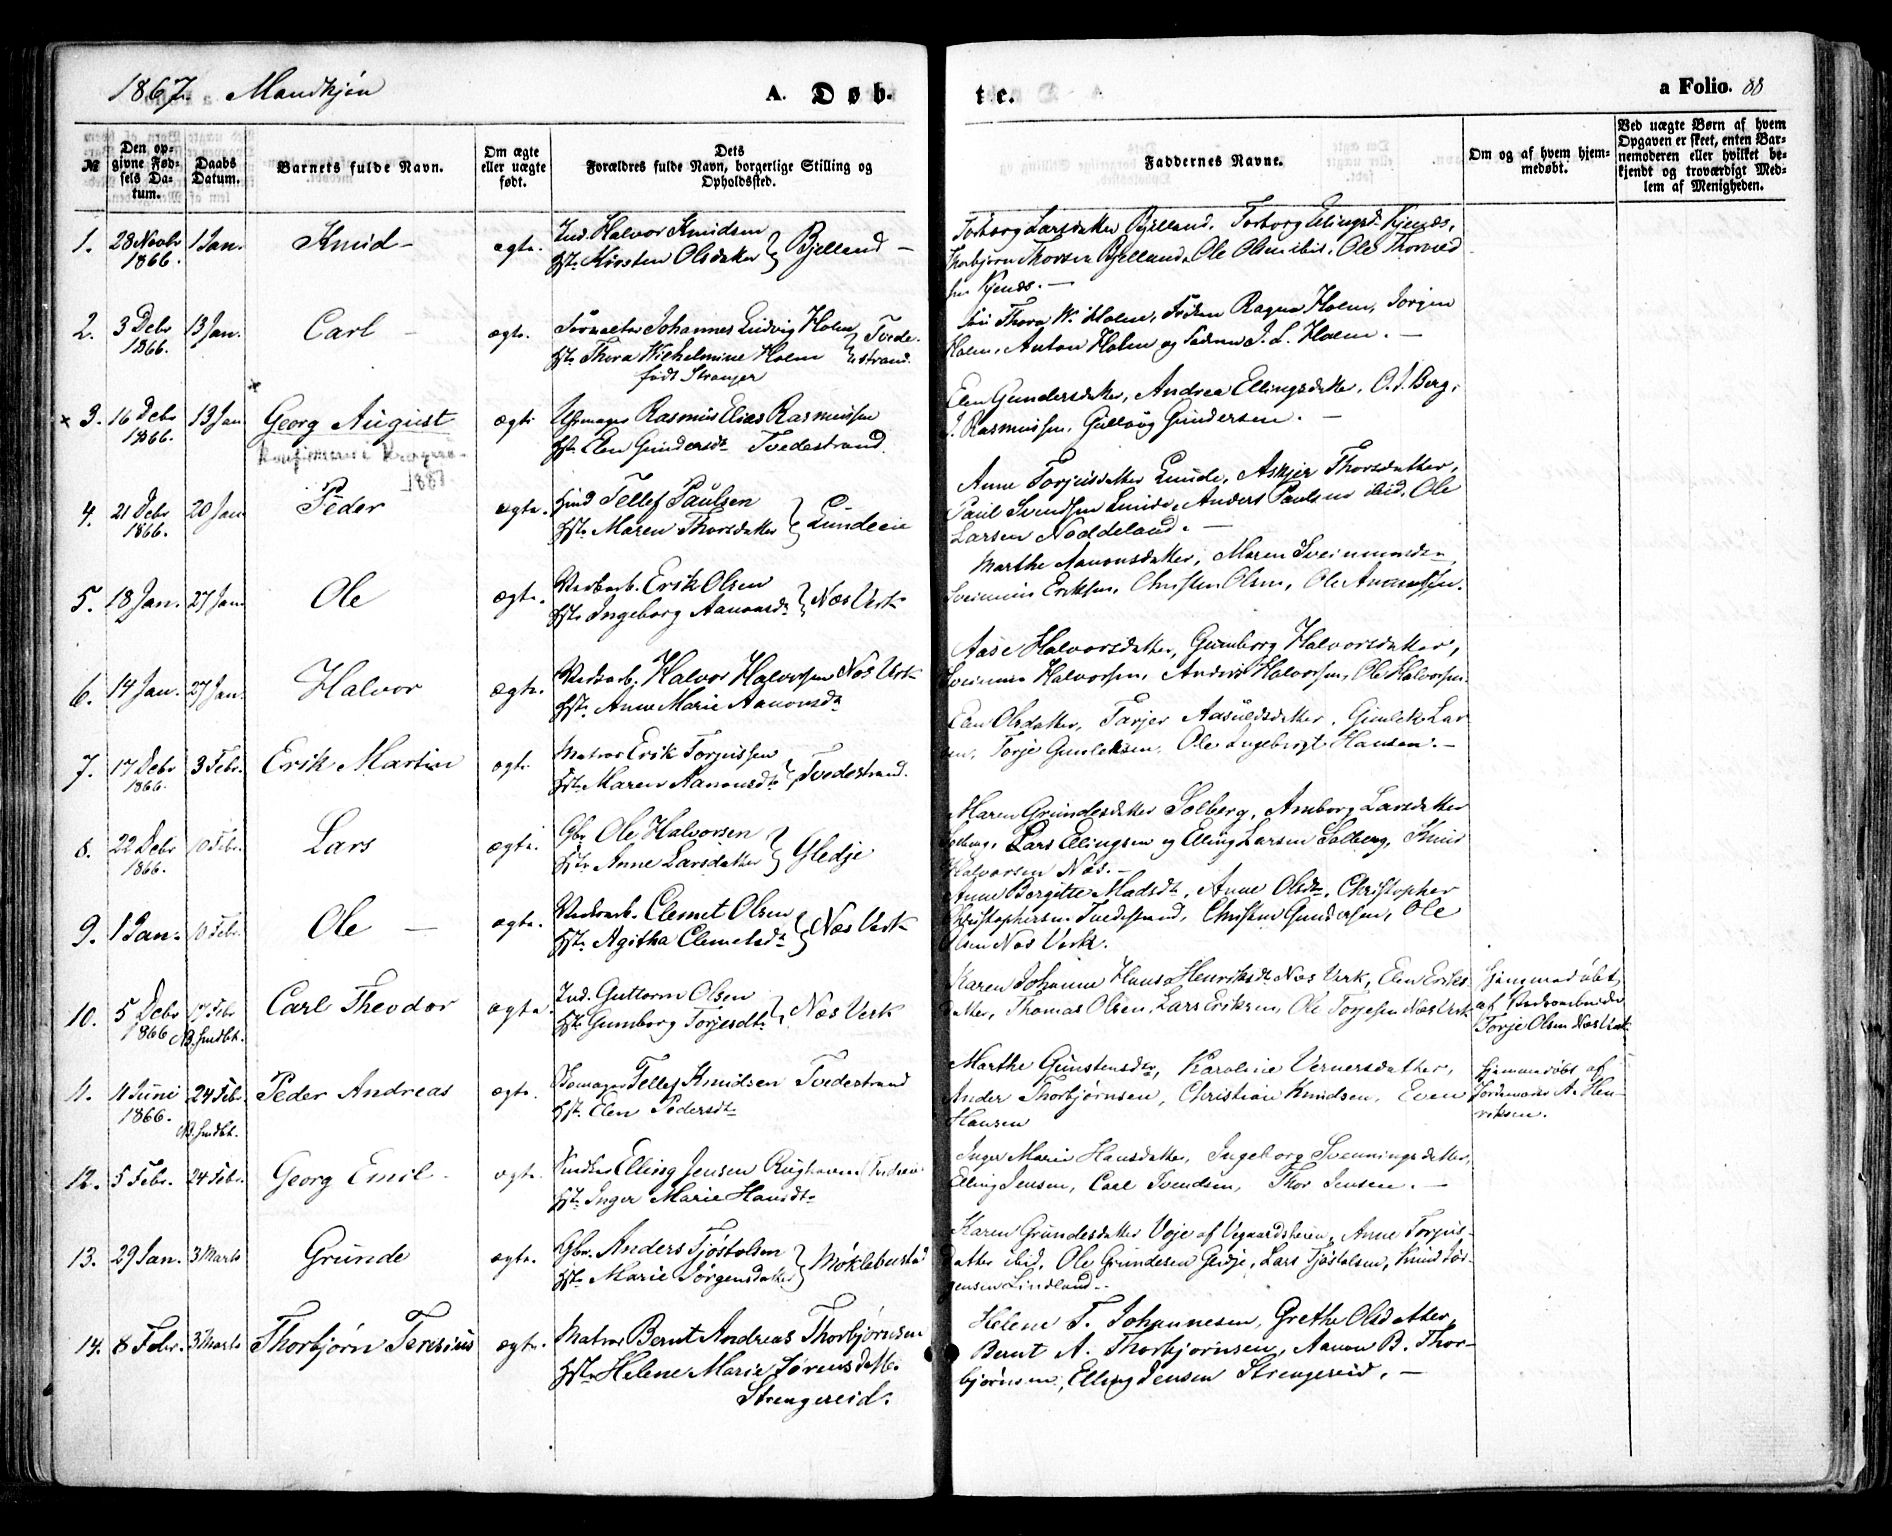 1867. Mandkjøn
A. Døb-
te.
a Folio. 88
№
Den op-
givne Fød-
sels Da-
tum.
Daabs
Datum.
Barnets fulde Navn.
Om ægte
eller uægte
født.
Dets
Forældres fulde Navn, borgerlige Stilling og
Opholdssted.
Faddernes Navne.
Om og af hvem hjem-
medøbt.
Ved uægte Børn af hvem
Opgaven er skeet, enten Bar-
nemoderen eller hvilket be-
kjendt og troværdigt Med-
lem af Menigheden.
1. 28 Novbr 1866. 1 Jan. Knud - ægte.
Ind. Halvor Knudsen
Hst. Kirsten Olsdatter } Bjelland -
Torborg Larsdatter Bjelland, Torborg Ellingsd. Kjenes,
Thorbjørn Thorsen Bjelland, Ole Olsen ibid, Ole Thorvald
sen Kjenes. -
2. 3 Debr 1866. 13 Jan. Carl - ægte.
Johannes Ludvig Holm
Hst. Thora Wilhelmine Holm } Tvede-
strand.
født Stranger
Thora W. Holm, Frøken Ragna Holm, Jørgen
Holm, Anton Holm og Faderen J. L. Holm. -
x 3. 16 Debr 1866. 13 Jan Georg August ægte
Konfirmeret Kragerø
1881.
Rasmus Elias Rasmussen
Hst. Elen Gundersdt Tvedestrand.
Elen Gundersdatter, Andrea Ellingsdatter, O. J. Berg,
J. Rasmussen, Gullaug Gundersen. -
4. 21 Debr 1866. 20 Jan Peder ægte.
Hmd Tellef Paulsen
Hst. Maren Thorsdatter } Lundeeie
Anne Torjusdatter Lunde, Askjer Thorsdatter,
Paul Svendsen Lunde, Anders Paulsen ibid, Ole
Larsen Noddeland. -
5. 18 Jan. 27 Jan Ole ægte.
Værksarb. Erik Olsen
Hst. Ingeborg Aanonsdt } Næs Verk
Marthe Aanonsdatter, Maren Sveinunsd.
Sveinun Eriksen, Christen Olsen, Ole Aanonsen.
6. 14 Jan. 27 Jan. Halvor ægte.
Værksarb. Halvor Halvorsen Næs Verk
Hst. Anne Marie Aanonsdt
Aase Halvorsdatter, Gunborg Halvorsdatter,
Sveinun Halvorsen, Anders Halvorsen, Ole Halvorsen.
7. 17 Debr 1866. 3 Febr. Erik Martin ægte
Matros Erik Torjussen
Hst. Maren Aanonsdt } Tvedestrand.
Elen Olsdatter, Tarjer Aasuldsdatter, Gunlek Lar
sen, Torje Gunleksen, Ole Ingebrigt Hansen. -
8. 22 Debr 1866. 10 Febr. Lars ægte.
Gbr. Ole Halvorsen
Hst. Anne Larsdatter } Gledje
Maren Grundesdatter Solberg, Amborg Larsdatter
Solberg, Lars Ellingsen og Elling Larsen Solberg, Knud
Halvorsen Næs. -
9. 1 Jan. 10 Febr. Ole - ægte.
Værksarb. Clemet Olsen
Hst. Agitha Clemetsdt } Næs Verk
Anne Bergitte Madsdt, Anne Olsdt, Christopher
Christophersen Tvedestrand, Christen Gundersen, Ole
Olsen Næs Verk.
10. 5 Debr 1866 17 Febr NB. Indbt. Carl Theodor ægte.
Ind. Guttorm Olsen
Hst. Gunborg Torjesdt. } Næs Verk
Karen Johanne Henriksdt. Næs Verk, Elen Eriks
datter, Thomas Olsen, Lars Eriksen, Ole Torjesen Næs Verk
Hjemmedøbt
af Værksarbeider
Torje Olsen Næs Verk
11. 11 Juni 1866. 24 Febr. NB. Indbt. Peder Andreas ægte.
Tellef Knudsen Tvedestrand
Hst. Elen Pedersdt
Marthe Gunstensdtr, Karoline Vernersdatter,
Ander Thorbjørnsen, Christian Knudsen, Even
Hansen
Hjemmedøbt af
Jordemoder A. Hen-
riksen.
12. 5 Febr. 24 Febr. Georg Emil - ægte.
Elling Jensen
Hst. Inger Marie Hansdt.
Inger Marie Hansdatter, Ingeborg Svenningsdatter,
Elling Jensen, Carl Svendsen, Thor Jensen. -
13. 29 Jan. 3 Marts Grunde ægte.
Gbr. Anders Tjøstolsen
Hst. Marie Jørgensdatter } Møklebustad
Karen Grundesdatter Voje af Vegaardsheien, Anne Torjus-
datter ibid, Ole Grundesen Gledje, Lars Tjøstolsen, Knud Jør-
gensen Lindland. -
14. 8 Febr. 3 Marts Thorbjørn Teresius ægte.
Matros Bernt Andreas Thorbjørnsen
Hst. Helene Marie Sørensdatter
Strengereid.
Helene T. Johannesen, Grethe Olsdatter,
Bernt A. Thorbjørnsen, Aanon B. Thor-
bjørnsen, Elling Jensen Strengereid. -